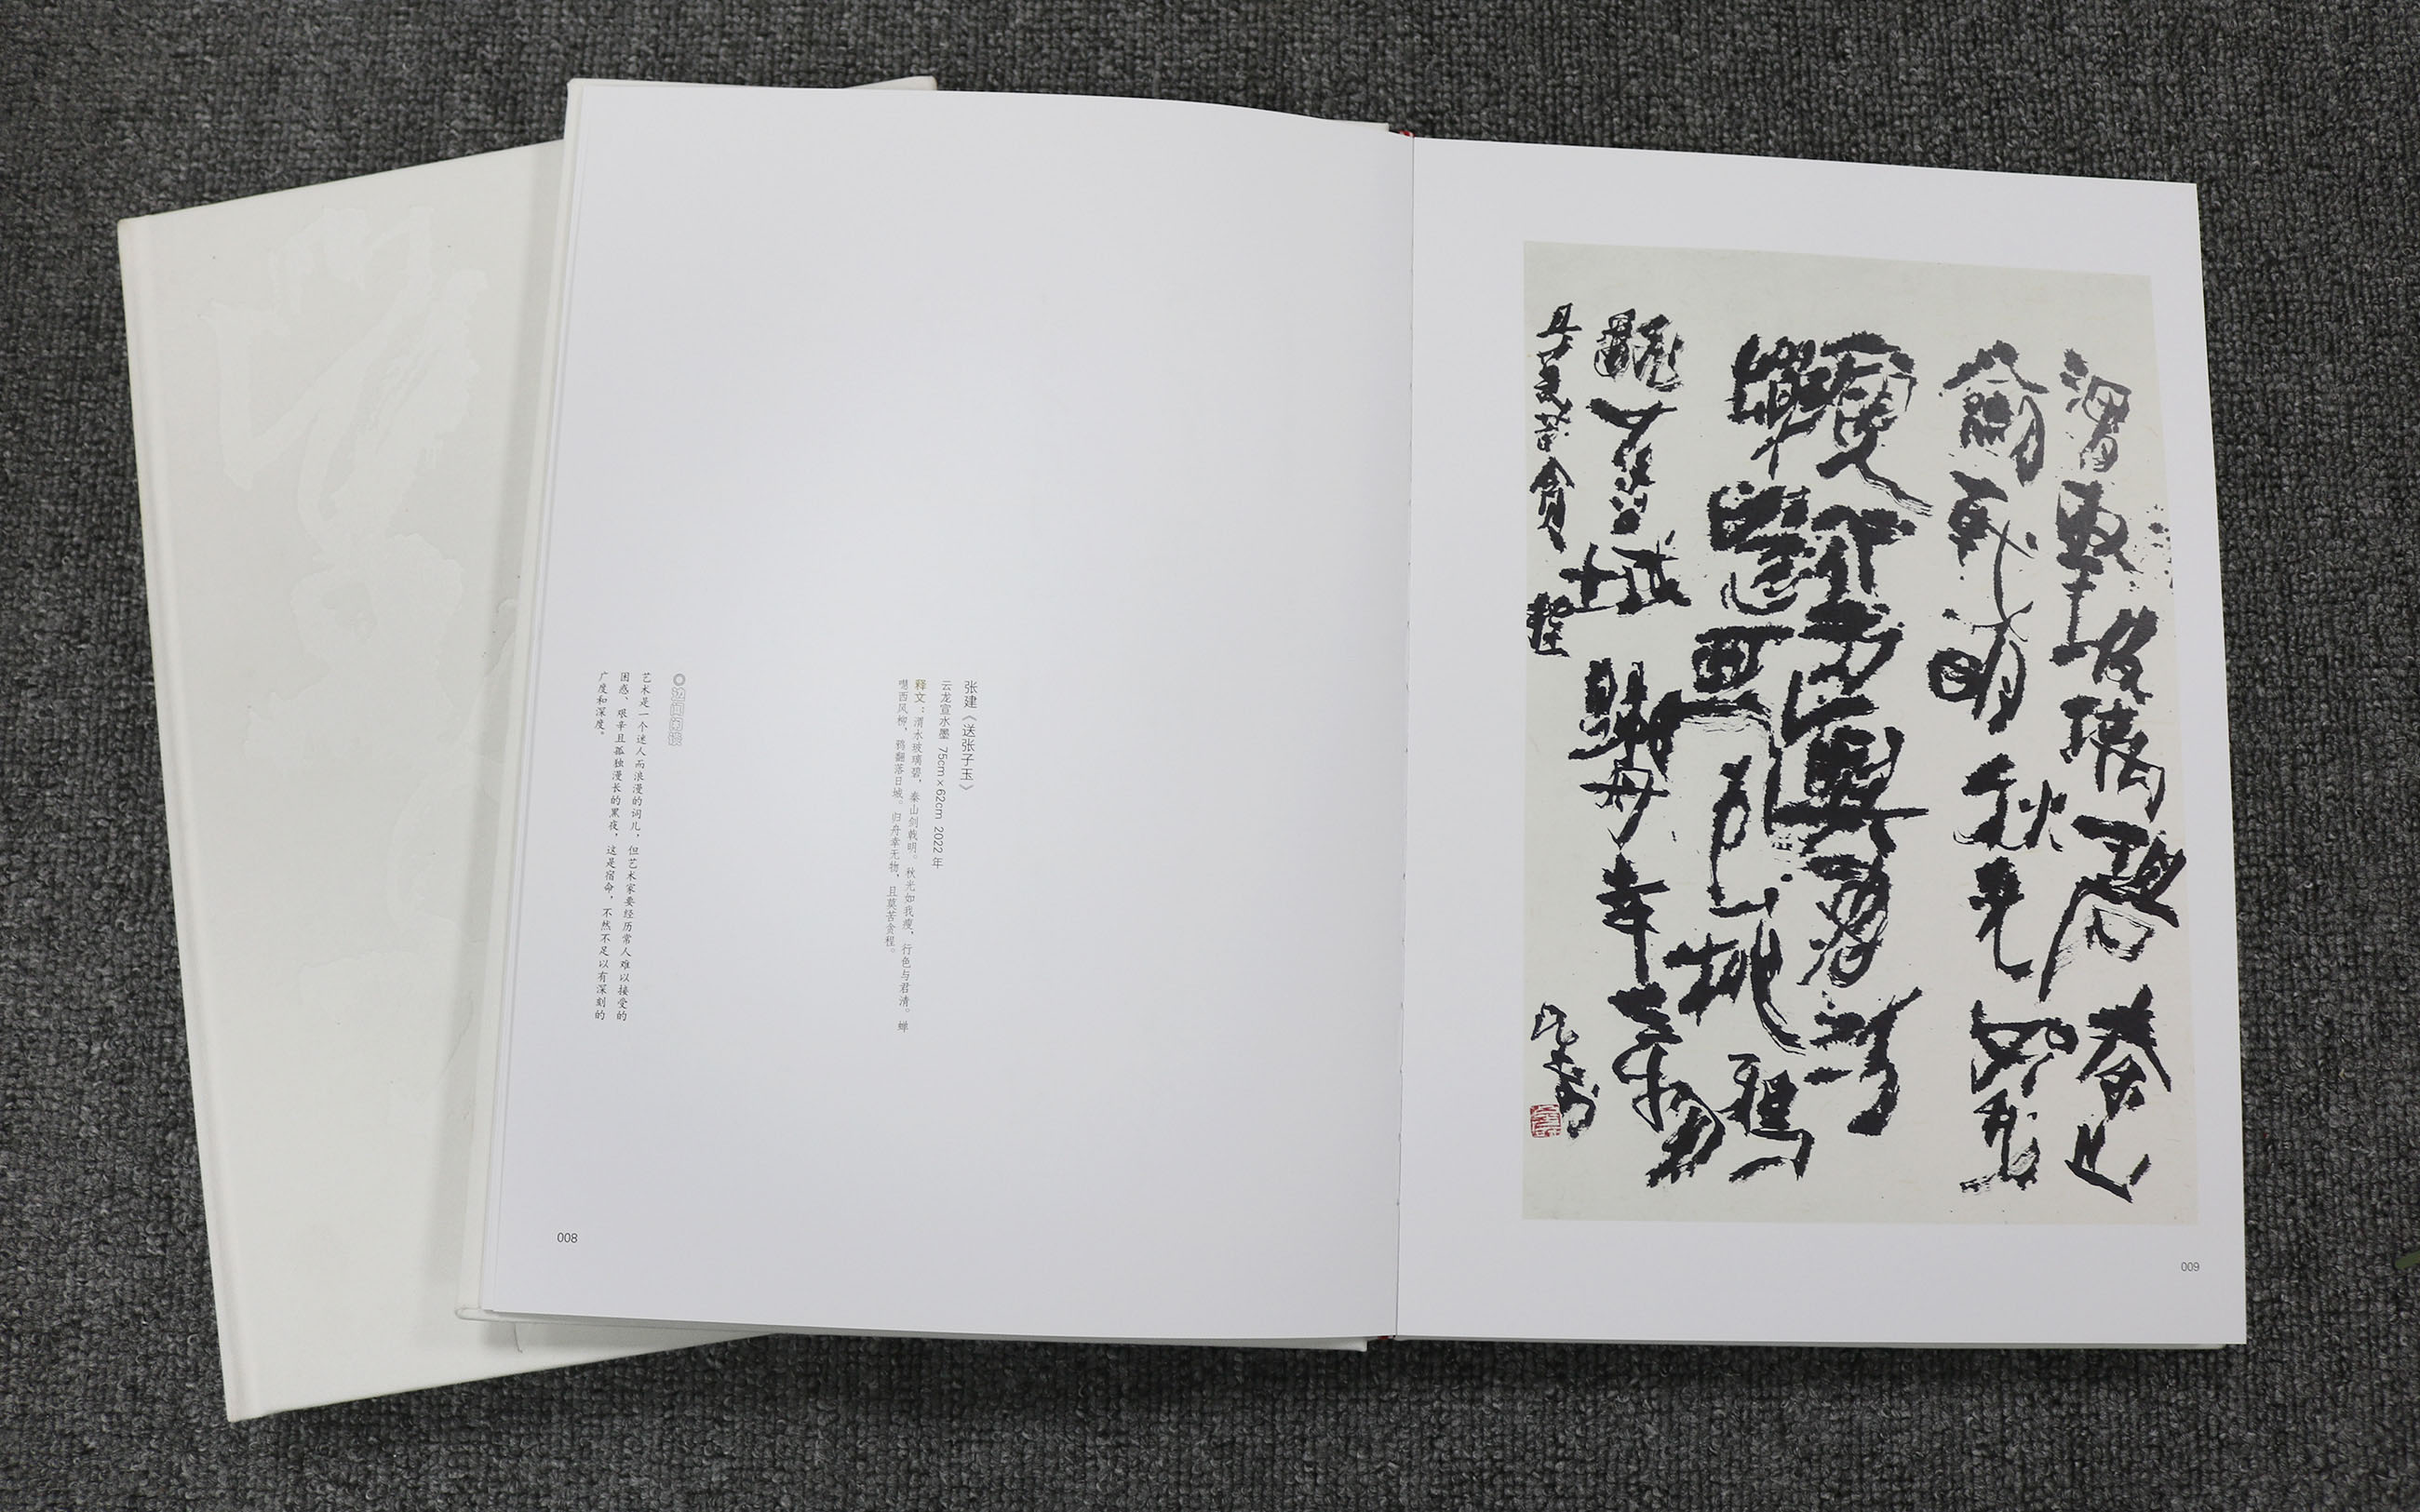 张建《送张子玉》
云龙宣水墨 75cm×62cm 2022年
释文：渭水玻璃碧，秦山剑戟明。秋光如我瘦，行色与君清。蝉
嘒西风柳，鸦翻落日城。归舟幸无物，且莫苦贪程。
艺术是一个迷人而浪漫的词儿，但艺术家要经历常人难以接受的
困惑、艰辛且孤独漫长的黑夜，这是宿命，不然不足以有深刻的
广度和深度。
008
玻璃碧秦山
秋光如我
瘦行色與君清
蟬嘒西風柳鴉
落日城歸舟幸无物
且莫苦貪程
009